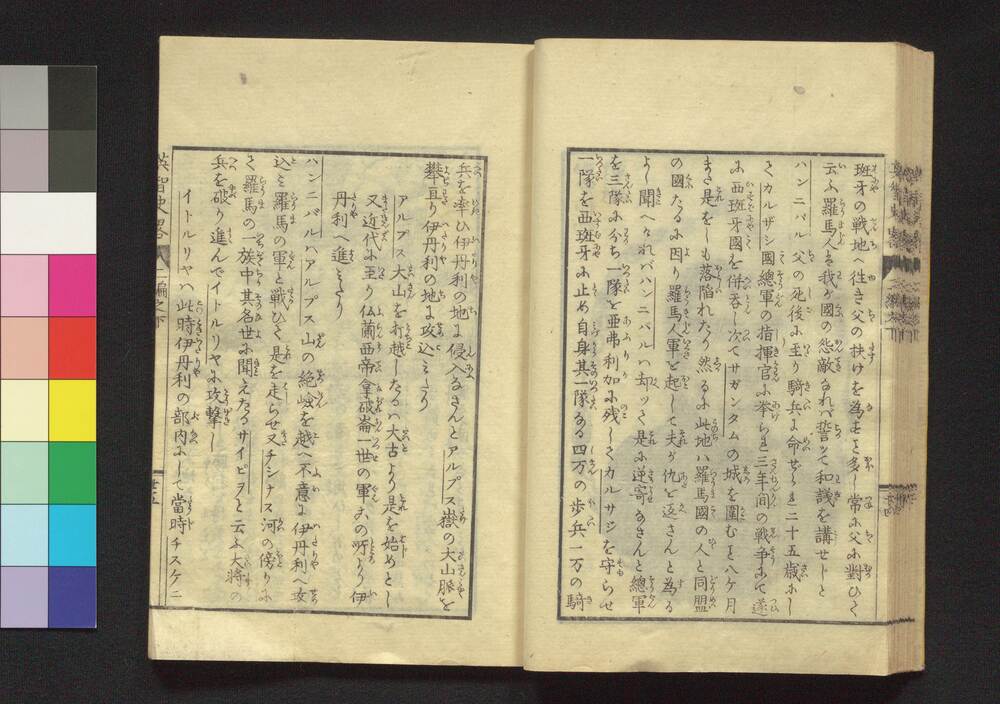 班牙の戦地へ往き父の扶けを為すヿ多し常に父に對ひて
云ふ羅馬人は我が國の怨敵なれバ誓ツて和議を講せじと
ハンニバル父の死後に至り騎兵に命ぜられ二十五歳にし
てカルサジ國總軍の指揮官に挙られ三年間の戦争にて遂
に西班牙國を併呑し次てサガンタムの城を圍むヿ八ケ月
また是をしも落陥れたり然るに此地ハ羅馬國の人と同盟
の國たるに因り羅馬人軍を起して夫が仇を返さんと為る
よし聞へけれバハンニバルハ却ッて是に逆寄なさんと總軍
を三隊に分ち一隊を亜弗利加に残してカルサジを守らせ
一隊を西班牙に止め自身其一隊なる四万の歩兵一万の騎
兵を率ひ伊丹利の地に侵入なさんとアルプス嶽の大山脈を
攀直り伊丹利の地に攻込みたり
アルプス大山を打越したるハ大古より是を始めとし
又近代に至り仏蘭西帝拿破崙一世の軍この所より伊
丹利へ進みたり
ハンニバルハアルプス山の絶嶮を越へ不意に伊丹利へ攻
込み羅馬の軍と戦ひて是を走らせ又チシナス河の傍りに
て羅馬の一族中其名世に聞えたるサイピヲと云ふ大将の
兵を破り進んでイトルリヤに攻撃し
イトルリヤハ此時伊丹利の部内にして當時チスケニ
英智史略 二編之下
廿五